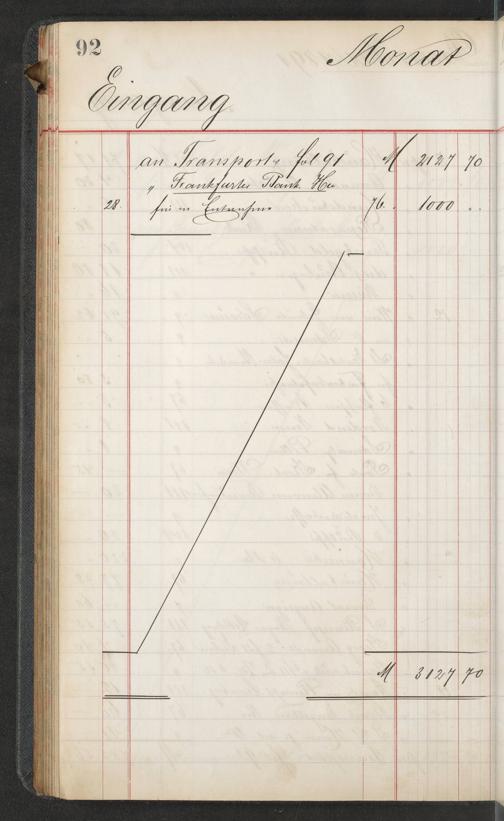 92
Monat
Eingang
an Transport fol 91 M 2127 70
" Frankfurter Bank Hier
28. für m Entnahme 76. 1000 ..
M 3127 70